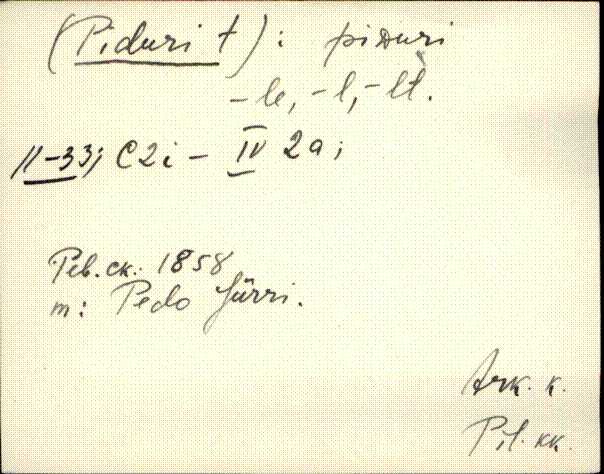 (Piduri t): piDuri
-le, -l, -lt.
11-33; C2i - IV 2a;
Рев. ск. 1858
m: Pedo Jürri.
Ark. k.
Pil. kk.